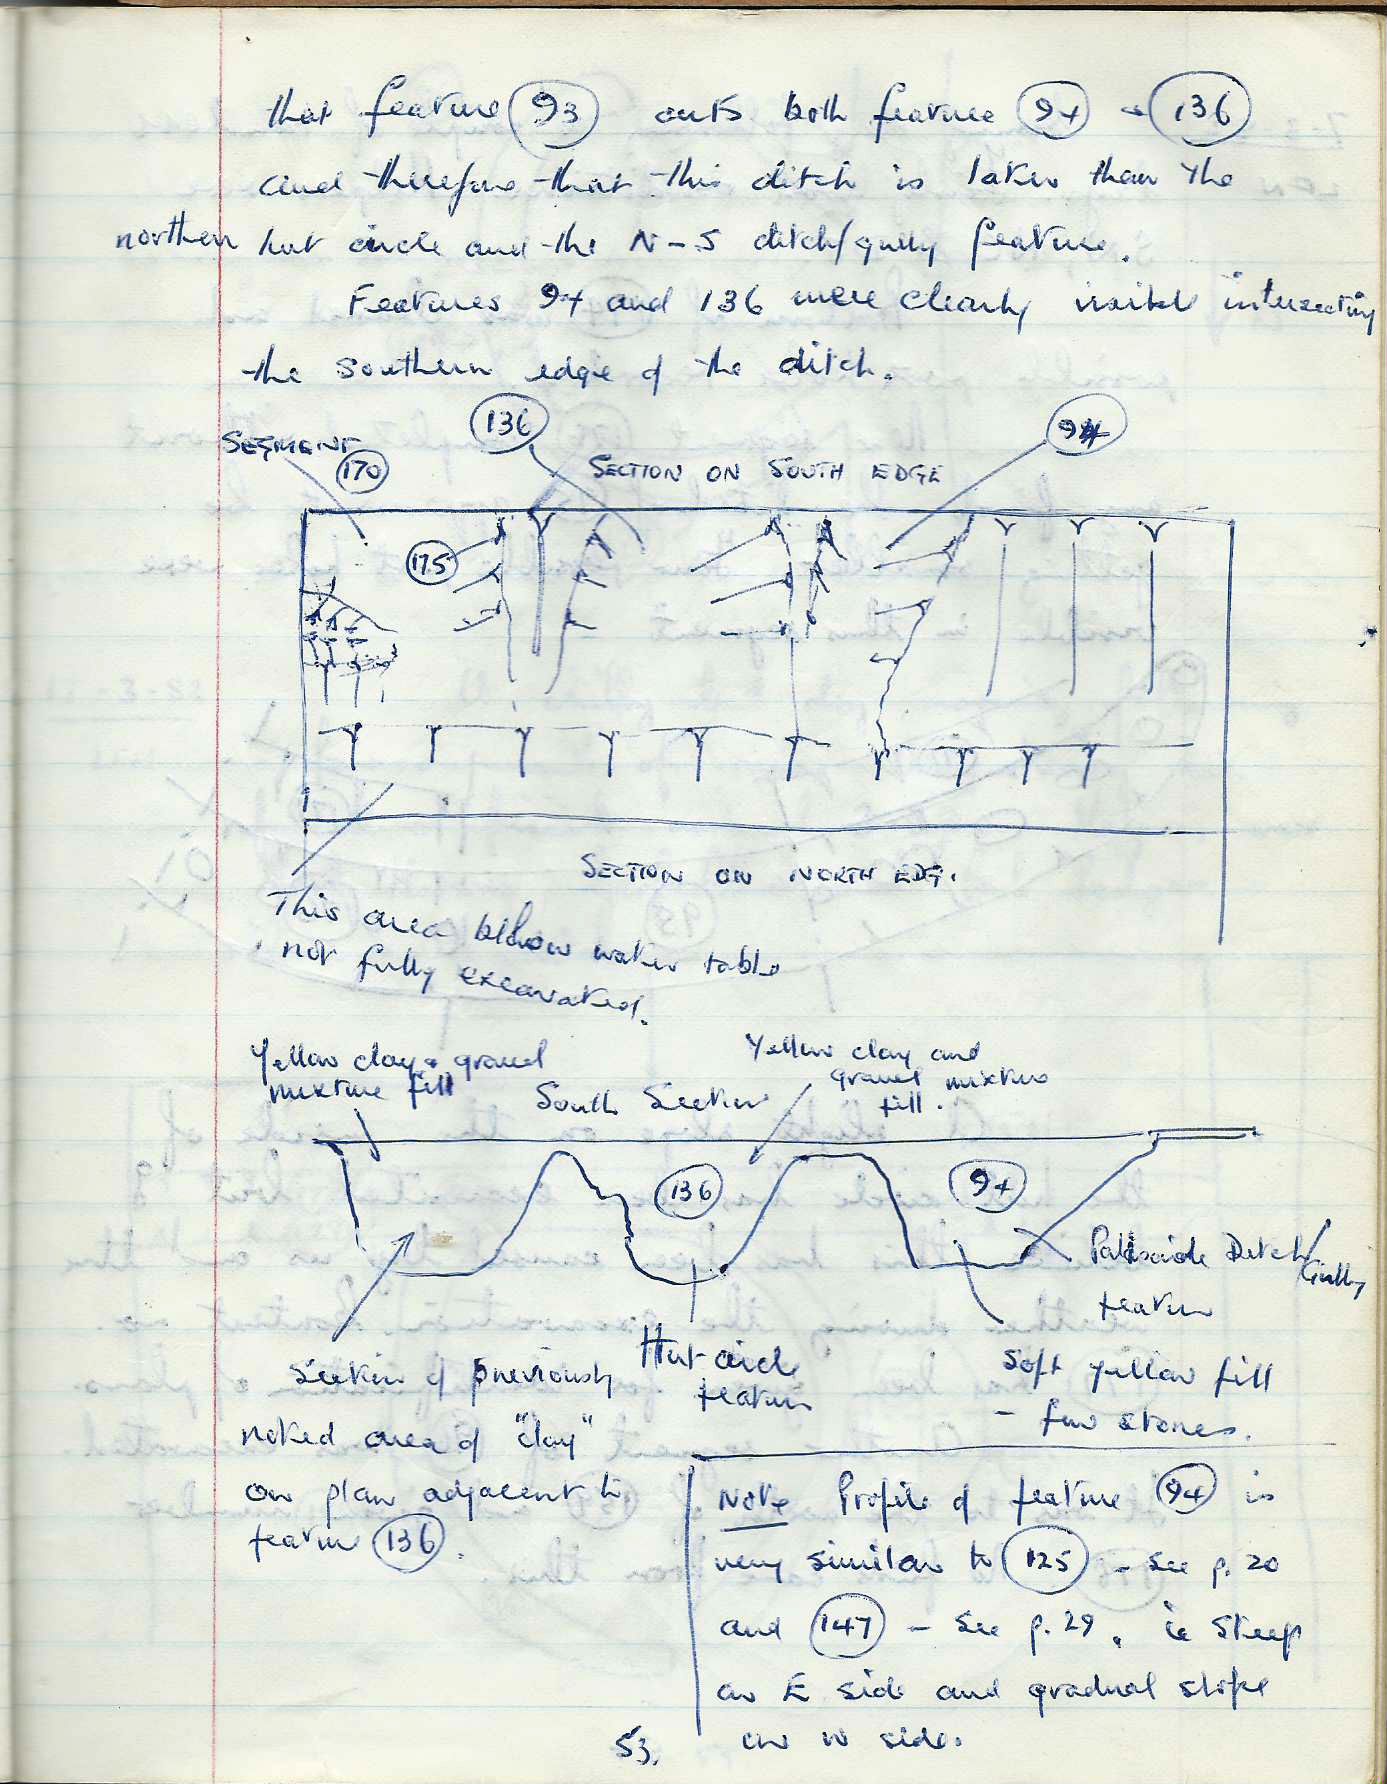 that feature 93 cuts both feature 94 + 136
and therefore that this ditch is later than the
northern hut circle and the N-S ditch/gully feature.
Features 94 and 136 were clearly visible intersecting
the southern edge of the ditch.
SEGMENT 170
136
94
SECTION ON SOUTH EDGE
175
SECTION ON NORTH EDG.
This area below water table
not fully excavated.
Yellow clay + gravel
mixture fill
South Section
Yellow clay and
gravel mixture
fill.
136
94
Palisade Ditch/
Gully
feature
Hut circle
feature
Soft yellow fill
- few stones.
Section of previously
noted area of "clay"
on plan adjacent to
feature 136.
Note Profile of feature 94 is
very similar to 125 - see p. 20
and 147 - see p. 29. ie steep
on E side and gradual slope
on W side.
53.